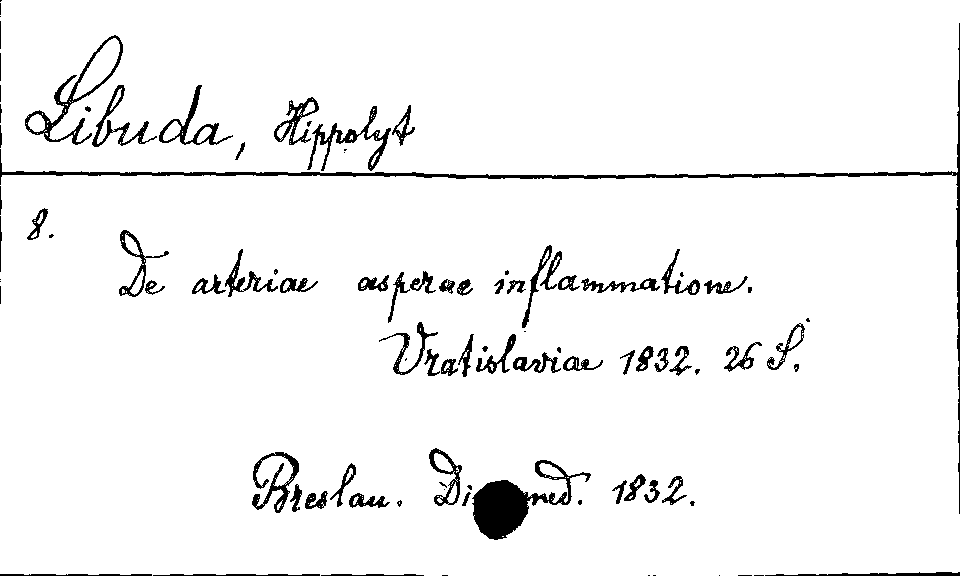 Libuda, Hippolyt
8.
De arteriae asperae inflammatione.
Vratislaviae 1832. 26 S.
Breslau. med. 1832.